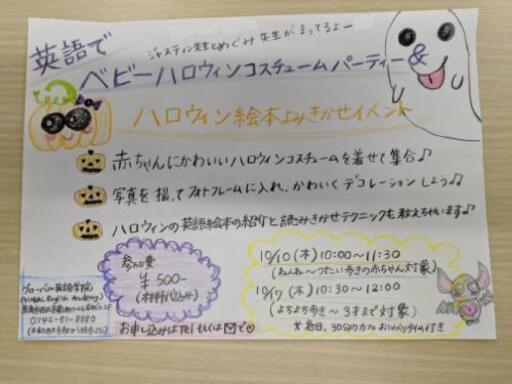 英語で
ジャスティン先生とめぐみ先生がまってるよー
ベビーハロウィンコスチュームパーティー&
ハロウィン絵本よみきかせイベント
赤ちゃんにかわいいハロウィンコスチュームを着せて集合♪
写真を撮ってフォトフレームに入れ、かわいくデコレーションしよう♫
ハロウィンの英語絵本の紹介と読みきかせテクニックを教えちゃいます♪
参加費
¥500-
(材料代込み)
10/10(木)10:00〜11:30
(ねんね〜つたい歩きの赤ちゃん対象)
10/17(木)10:30〜12:00
(よちよち歩き〜3才まで対象)
*各日、30分のカフェおしゃべりタイム付き
グローバル英語学院
(Global English Academy)
0742-81-8880
お申し込みはTELもしくは✉で♡